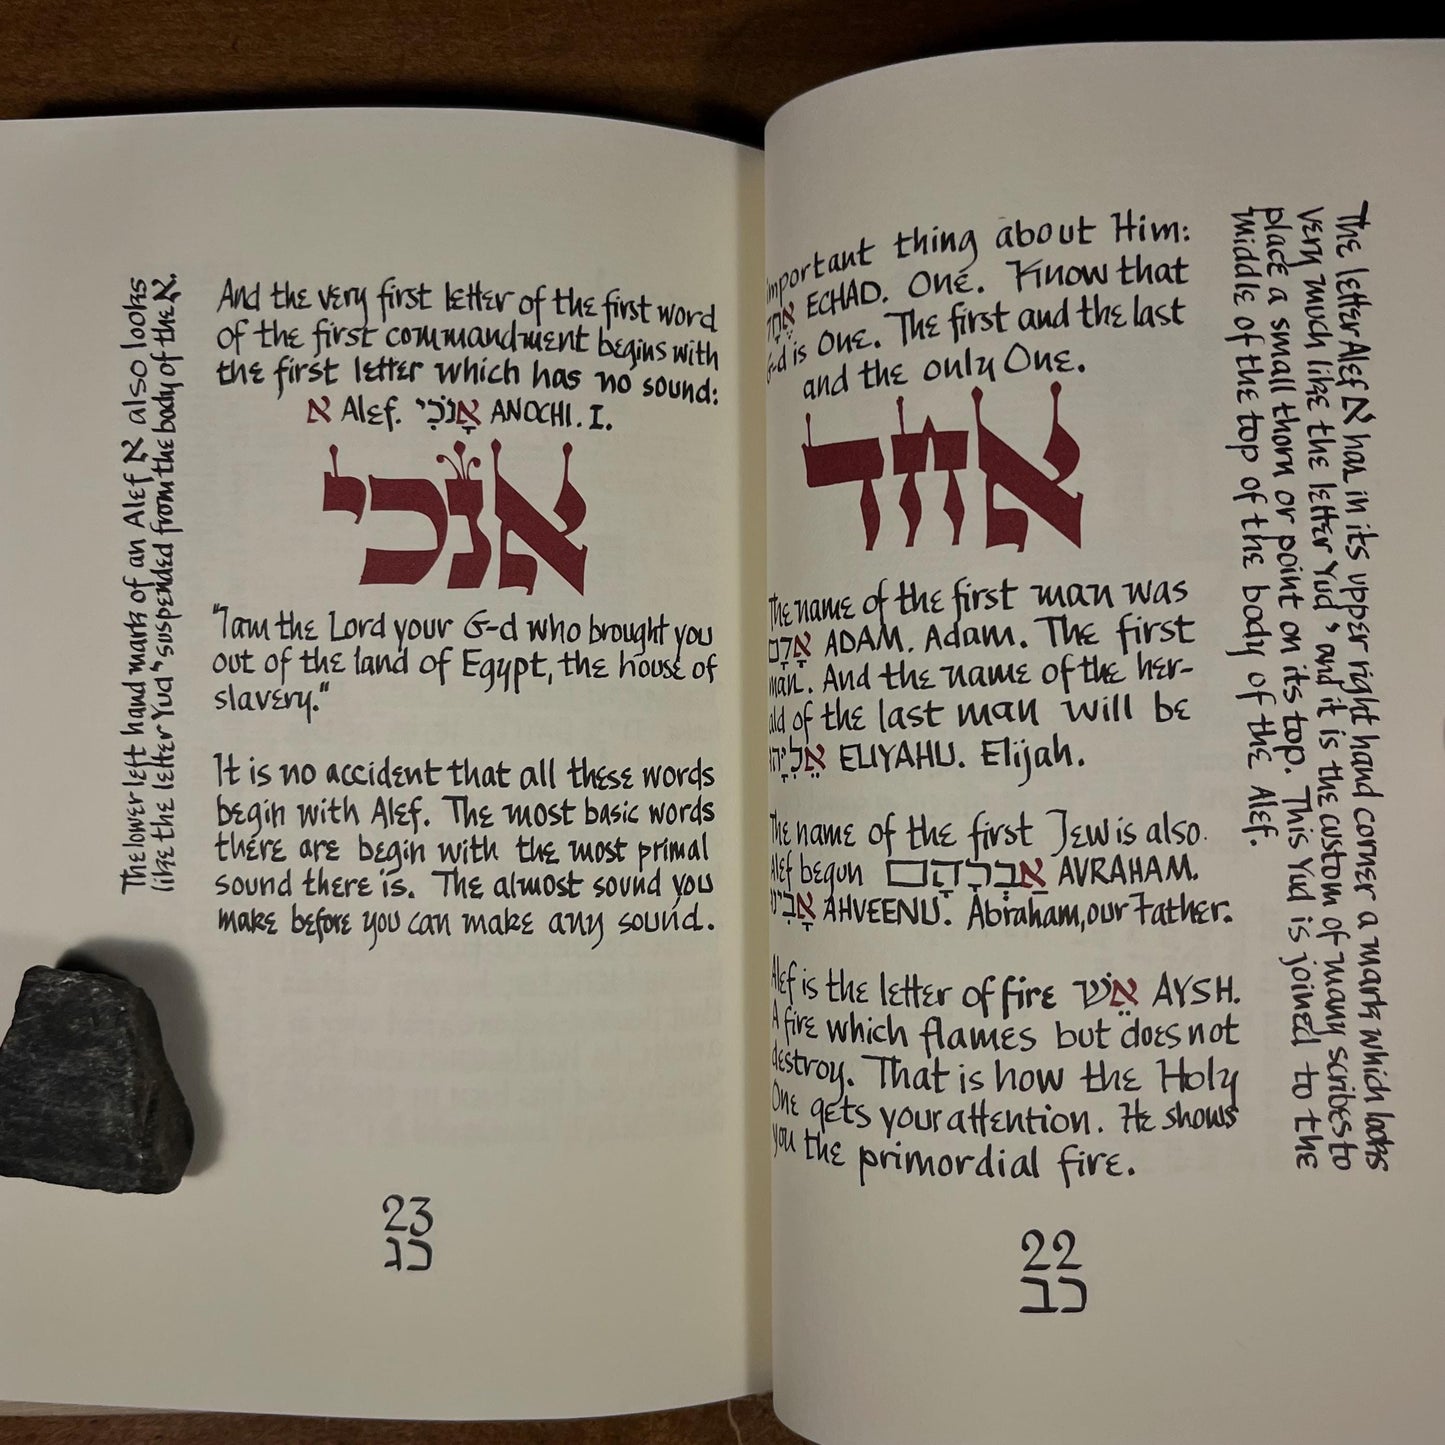 important thing about Him:
אֶחָד ECHAD. One. Know that
G-d is One. The first and the last
and the only One.
אחד
The name of the first man was
אָדָם ADAM. Adam. The first
man. And the name of the her-
ald of the last man will be
אֵלִיָּהוּ ELIYAHU. Elijah.
The name of the first Jew is also
Alef begun אַבְרָהָם AVRAHAM.
אָבִינוּ AHVEENU. Abraham, our Father.
Alef is the letter of fire אֵשׁ AYSH.
A fire which flames but does not
destroy. That is how the Holy
One gets your attention. He shows
you the primordial fire.
The letter Alef א has in its upper right hand corner a mark which looks
very much like the letter Yud י and it is the custom of many scribes to
place a small thorn or point on its top. This Yud is joined to the
middle of the top of the body of the Alef.
22
כב
And the very first letter of the first word
of the first commandment begins with
the first letter which has no sound:
א Alef. אָנֹכִי ANOCHI. I.
אנכי
"I am the Lord your G-d who brought you
out of the land of Egypt, the house of
slavery."
It is no accident that all these words
begin with Alef. The most basic words
there are begin with the most primal
sound there is. The almost sound you
make before you can make any sound.
The lower left hand mark of an Alef א also looks
like the letter Yud י suspended from the body of the א.
23
כג